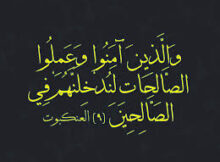 وَالَّذِينَ آمَنُوا وَعَمِلُوا
الصَّالِحَاتِ لَنُدْخِلَنَّهُمْ فِي
الصَّالِحِينَ [٩] العنكبوت